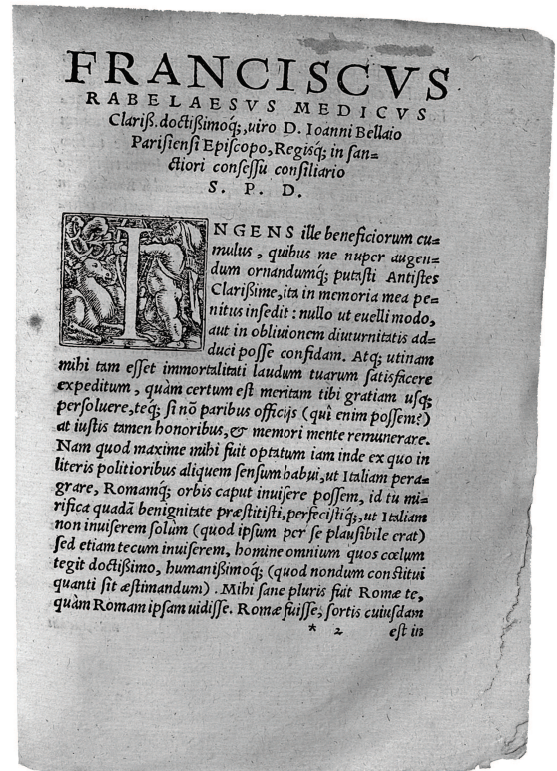 FRANCISCVS
RABELAESVS MEDICVS
Clariß. doctißimoq́;, uiro D. Ioanni Bellaio
Parisiensi Episcopo, Regisq́; in san=
ctiori consessu consiliario
S. P. D.
INGENS ille beneficiorum cu=
mulus, quibus me nuper augen=
dum ornandumq́; putasti Antistes
Clarißime, ita in memoria mea pe=
nitus insedit : nullo ut euelli modo,
aut in obliuionem diuturnitatis ad=
duci posse confidam. Atq; utinam
mihi tam esset immortalitati laudum tuarum satisfacere
expeditum, quàm certum est meritam tibi gratiam usq;
persoluere, teq́; si nõ paribus officijs (quî enim possem?)
at iustis tamen honoribus, & memori mente remunerare.
Nam quod maxime mihi fuit optatum iam inde ex quo in
literis politioribus aliquem sensum habui, ut Italiam pera=
grare, Romamq́; orbis caput inuisere possem, id tu mi=
rifica quadã benignitate præstitisti, perfecistiq́;, ut Italiam
non inuiserem solùm (quod ipsum per se plausibile erat)
sed etiam tecum inuiserem, homine omnium quos cœlum
tegit doctißimo, humanißimoq́; (quod nondum constitui
quanti sit æstimandum). Mihi sane pluris fuit Romæ te,
quàm Romam ipsam uidisse. Romæ fuisse, sortis cuiusdam
* 2 est in